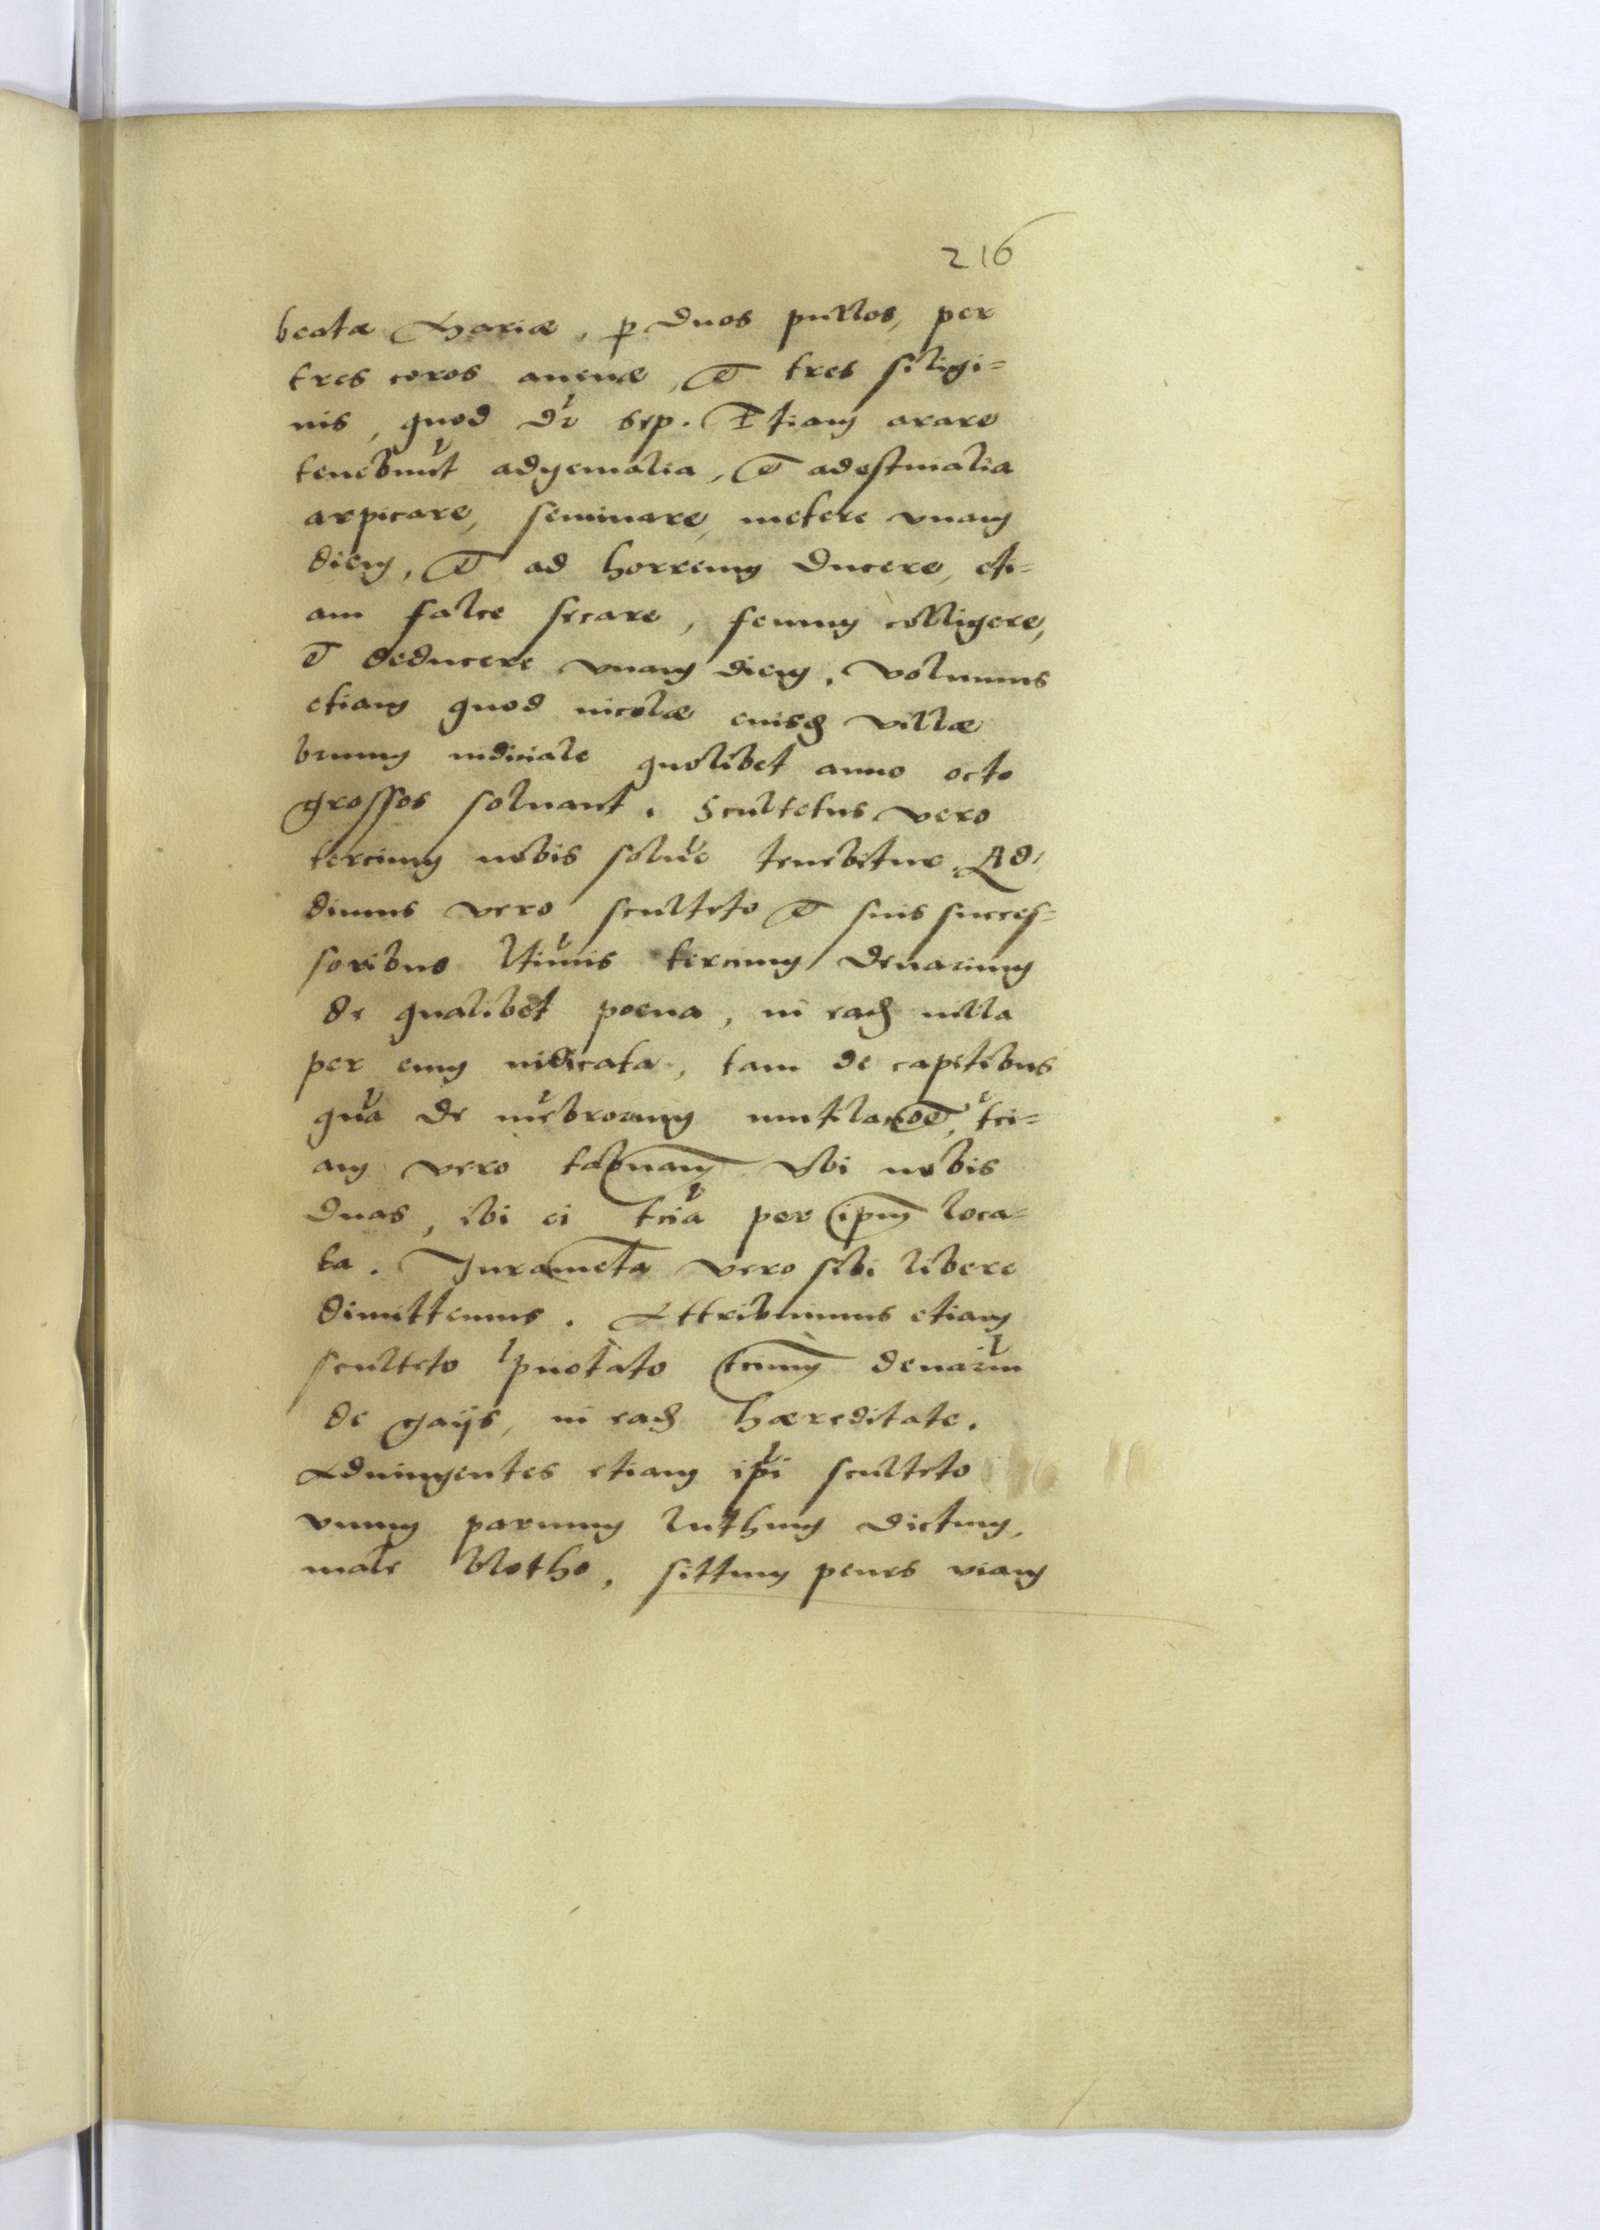 216
beatæ Mariæ, p duos pullos, per
tres coros auenæ, et tres siligi=
nis, quod dr sep. Etiam arare
tenebunt adyemalia, et adestiualia
arpicare, seminare, metere vnam
diem, et ad horreum ducere, eti=
am falce secare, fenum colligere,
et deducere vnam diem. Volumus
etiam quod incolæ euisd villæ
bruum iudiciale quolibet anno octo
grossos soluant. Scultetus vero
tercium nobis solue tenebitur. Ad=
dimus vero sculteto et suis succes=
soribus ltimis tercium denarium
de qualibet poena, in ead uilla
per eum iudicata, tam de capitibus
qua de mebrorum mutilacoe, tci=
am vero tabnam vbi nobis
duas, ibi ei tcia per ipm loca=
ta. Jurameta vero sibi libere
dimittemus. Attribuimus etiam
sculteto pnotato tcium denarium
de gaijs, in ead hæreditate.
Adiungentes etiam ipi sculteto
vnum paruum luthum dictum,
male bloto, sittum penes viam